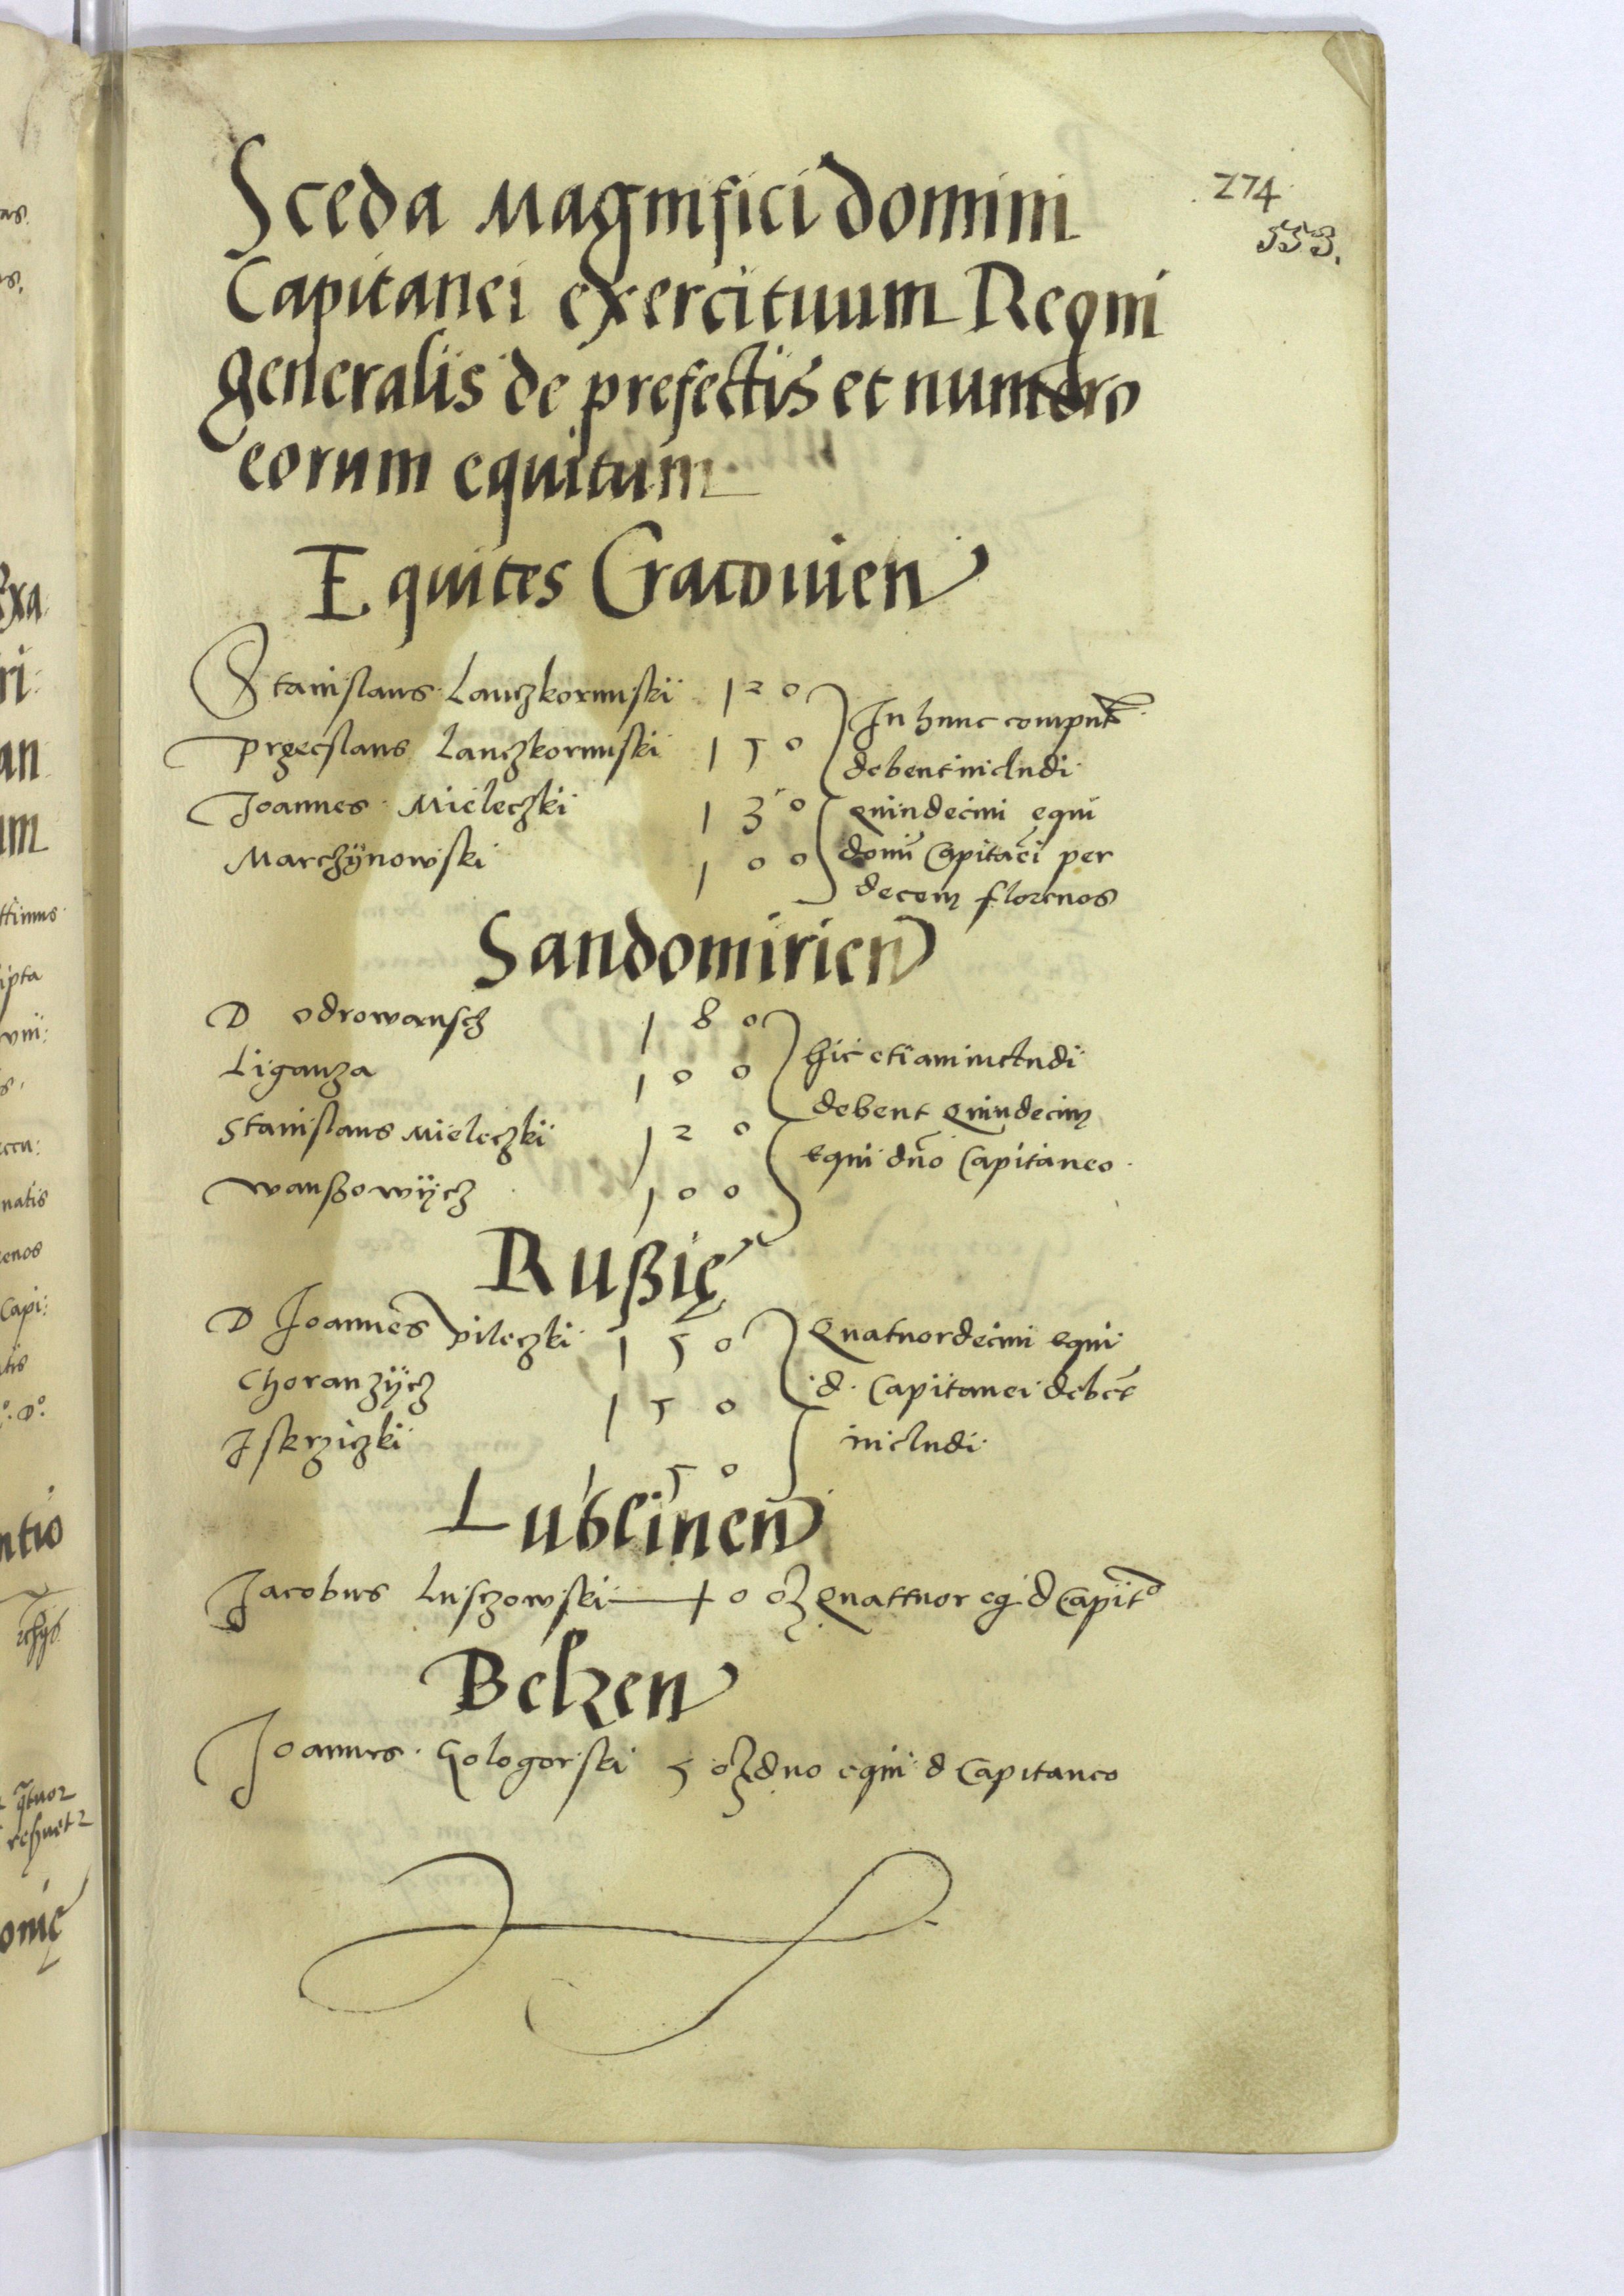 Sceda Magnifici domini
Capitanei exercituum Regni
generalis de prefectis et numero
eorum equitum
274
553.
Equites Cracovien
Stanislaus Lanczkorunski 120
Przeczlaus Lanczkorunski 150
Joannes Mieleczki 130
Marczÿnowski 100
In hunc computũ
debent includi
quindecim equi
domĩ Capitaẽi per
decem florenos
Sandomirien
D Odrowansch 180
Liganza 100
Stanislaus Mieleczki 120
Wanßowÿcz 100
hic etiam includi
debent quindecim
equi dño Capitaneo
Rußię
D Joannes Pileczki 150
Choranzÿcz 150
Iskrziczki 150
Quatuordecim equi
d. Capitanei debẽt
includi
Lublinen
Jacobus Lusczowski 100 Quattuor eq. d Capitº
Belzen
Joannes Gologorski 50 duo equi d Capitaneo